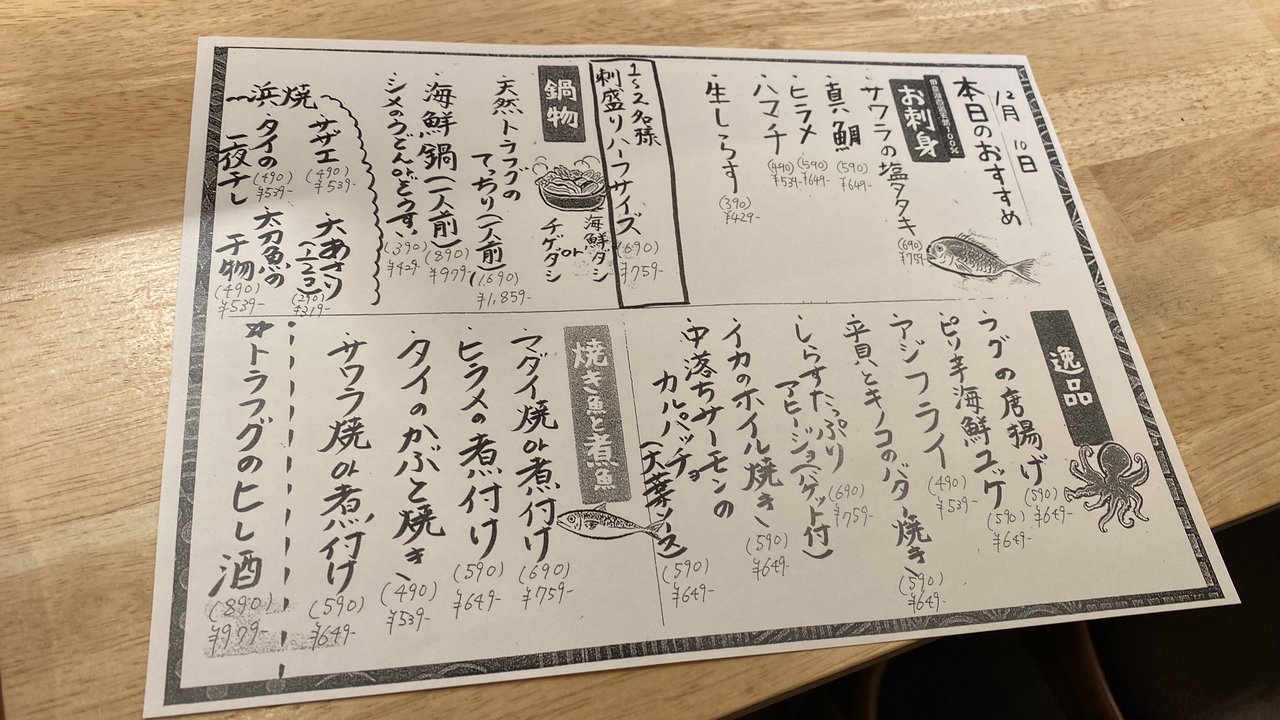 12月10日
本日のおすすめ
お刺身
サワラの塩タタキ
(690)
¥759-
真鯛
(590)
¥649-
ヒラメ
(590)
¥649-
ハマチ
(490)
¥539-
生しらす
(390)
¥429-
1~2名様
刺盛りハーフサイズ
(690)
¥759-
鍋物
海鮮ダシ
or
チゲダシ
天然トラフグの
てっちり(一人前)
(1,690)
¥1,859-
海鮮鍋(一人前)
(890)
¥979-
シメのうどんorぞうすい
(390)
¥429-
浜焼
サザエ
(490)
¥539-
大あさり
(1コ)
(290)
¥319-
タイの
一夜干し
(490)
¥539-
太刀魚の
干物
(490)
¥539-
逸品
フグの唐揚げ
(590)
¥649-
ピリ辛海鮮ユッケ
(590)
¥649-
アジフライ
(490)
¥539-
平貝とキノコのバター焼き
(590)
¥649-
しらすたっぷり
アヒージョ(バゲット付)
(690)
¥759-
イカのホイル焼き
(590)
¥649-
中落ちサーモンの
カルパッチョ
(大葉ソース)
(590)
¥649-
焼き魚と煮魚
マダイ焼or煮付け
(690)
¥759-
ヒラメの煮付け
(590)
¥649-
タイのかぶと焼き
(490)
¥539-
サワラ焼or煮付け
(590)
¥649-
☆トラフグのヒレ酒
(890)
¥979-